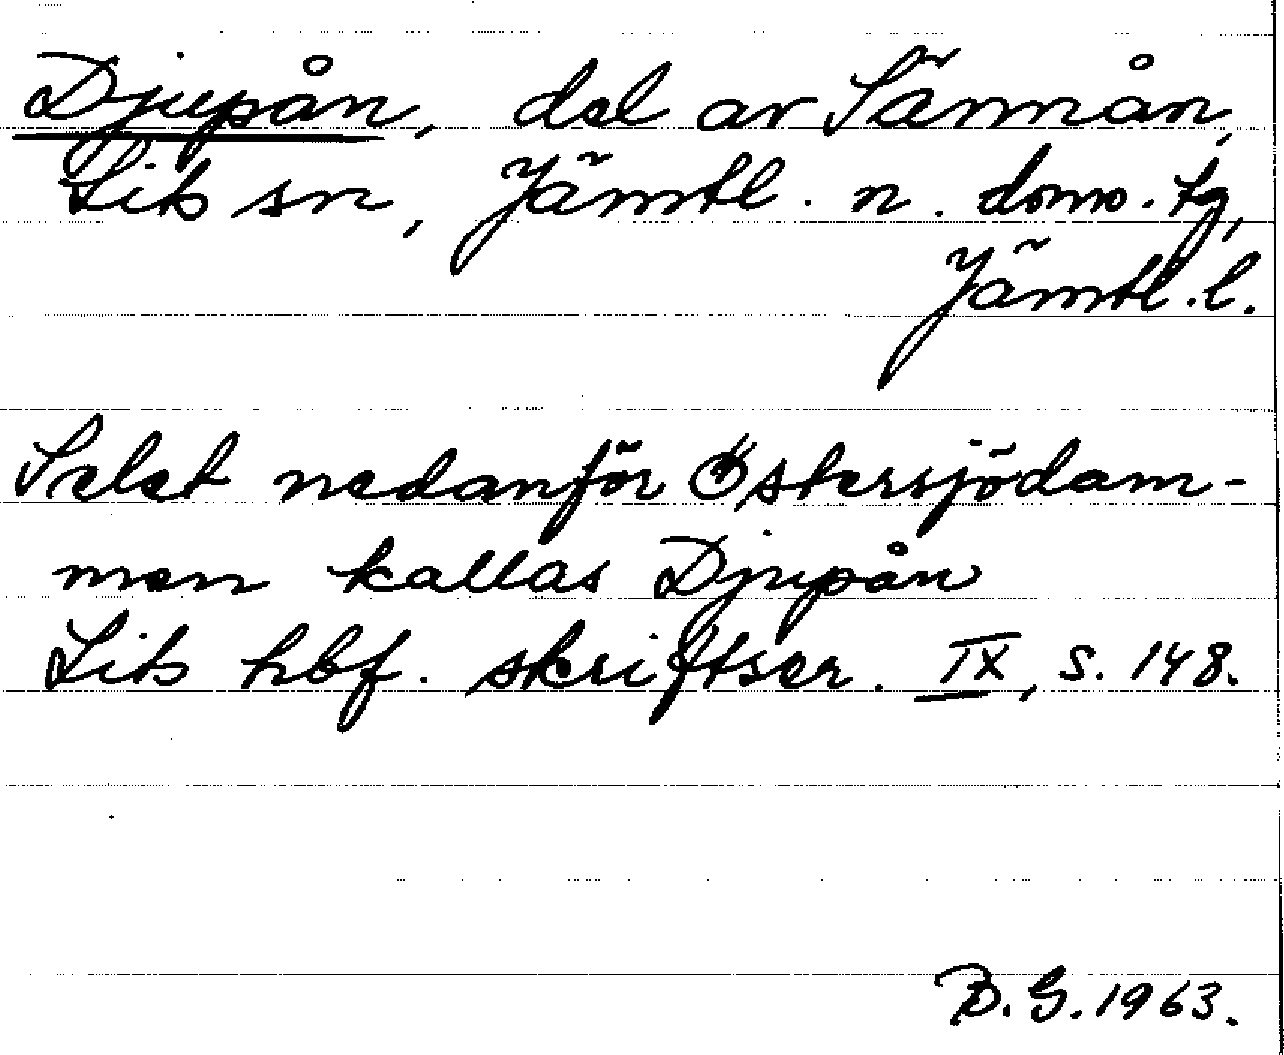 Djupån, del av Särmån,
Lits sn, Jämtl. n. doms. tg,
Jämtl. l.
Selet nedanför Östersjödam-
men kallas Djupån
Lits hbf. skriftser. IX, s. 148.
B. G. 1963.